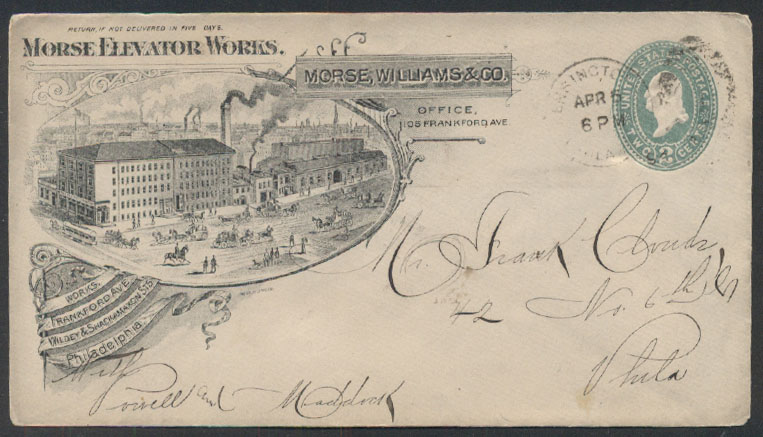 RETURN, IF NOT DELIVERED IN FIVE DAYS.
MORSE ELEVATOR WORKS.
MORSE, WILLIAMS & CO.
OFFICE,
1105 FRANKFORD AVE
APR
6 P
UNITED STATES POSTAGE
TWO CENTS
2
WORKS.
FRANKFORD AVE.
WILDEY & SHACKAMAXON STS
Philadelphia.
Mr. Frank Clouds
42 No. 6th St
Phila
Powell and Maddock